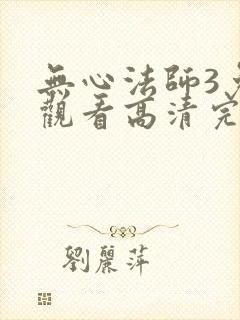 無心法師3
觀看高清完
劉麗萍